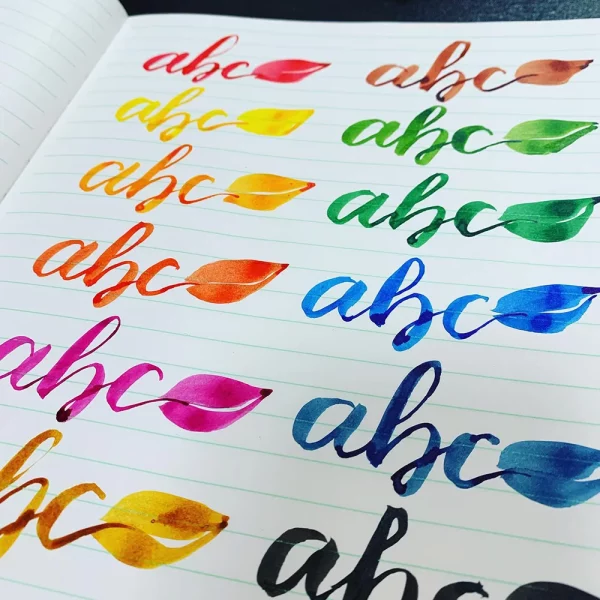 abc abc
abc abc
abc abc
abc abc
abc abc
bc abc